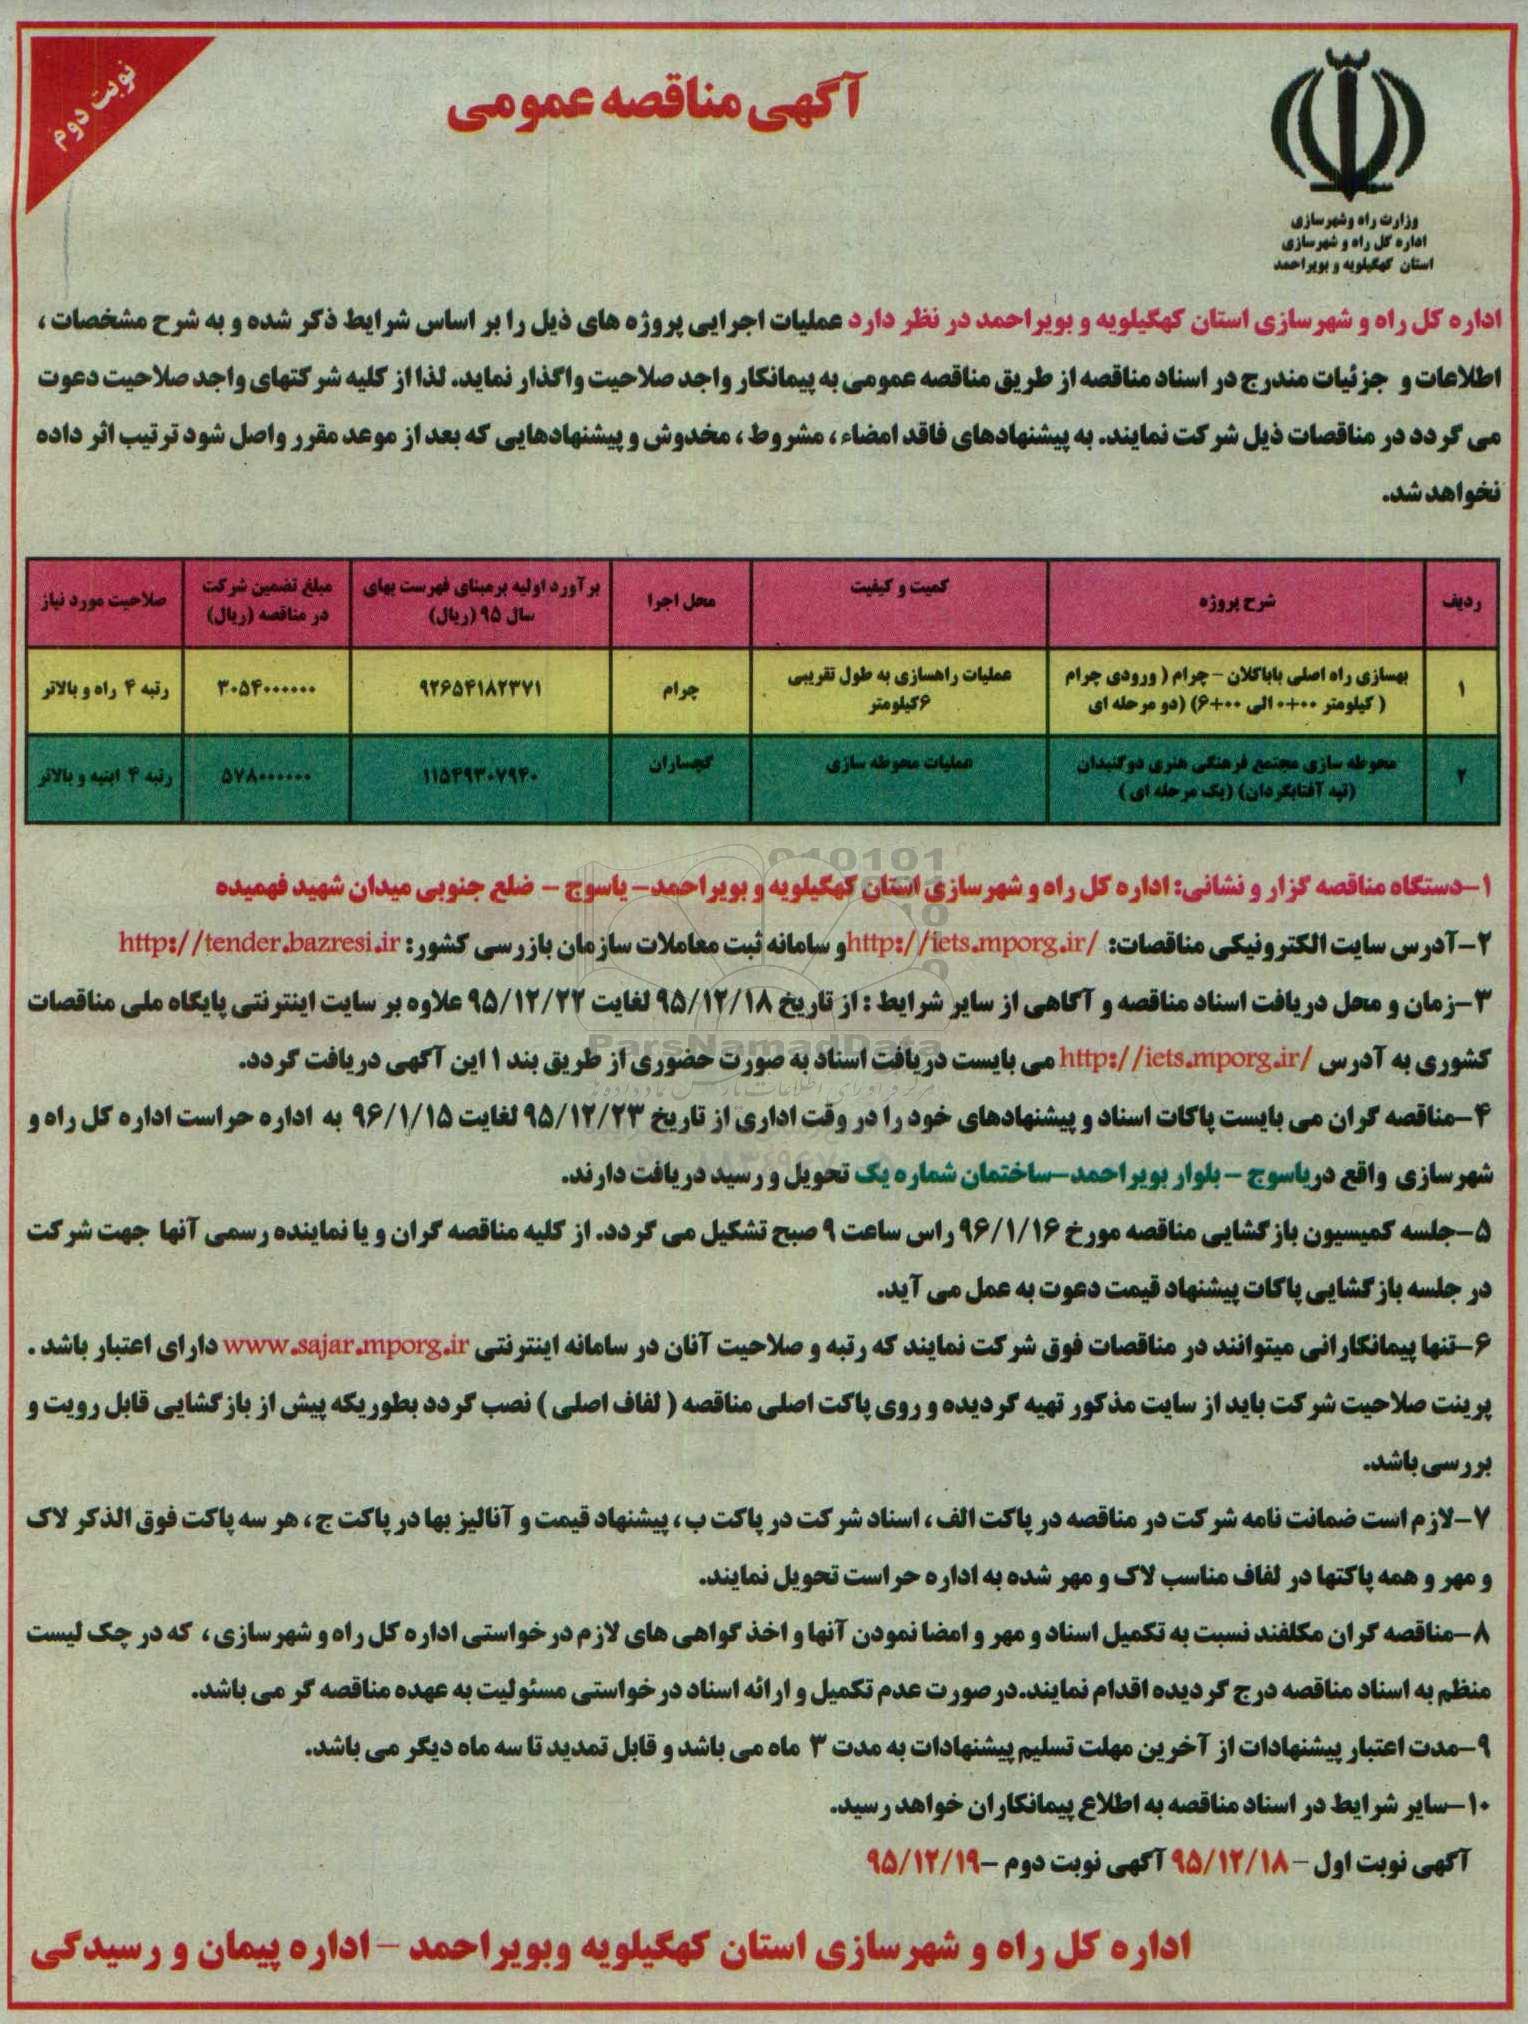 نوبت دوم
آگهی مناقصه عمومی
وزارت راه وشهرسازی
اداره کل راه و شهرسازی
استان کهگیلویه و بویراحمد
اداره کل راه و شهرسازی استان کهگیلویه و بویراحمد در نظر دارد عملیات اجرایی پروژه های ذیل را بر اساس شرایط ذکر شده و به شرح مشخصات ،
اطلاعات و جزئیات مندرج در اسناد مناقصه از طریق مناقصه عمومی به پیمانکار واجد صلاحیت واگذار نماید. لذا از کلیه شرکتهای واجد صلاحیت دعوت
می گردد در مناقصات ذیل شرکت نمایند. به پیشنهادهای فاقد امضاء ، مشروط ، مخدوش و پیشنهادهایی که بعد از موعد مقرر واصل شود ترتیب اثر داده
نخواهد شد.
ردیف | شرح پروژه | کمیت و کیفیت | محل اجرا | برآورد اولیه برمبنای فهرست بهای سال ۹۵ (ریال) | مبلغ تضمین شرکت در مناقصه (ریال) | صلاحیت مورد نیاز
۱ | بهسازی راه اصلی باباکلان – چرام ( ورودی چرام ( کیلومتر ۰۰+۰ الی ۰۰+۶) (دو مرحله ای | عملیات راهسازی به طول تقریبی ۶کیلومتر | چرام | ۹۲۶۵۴۱۸۲۳۷۱ | ۳۰۵۴۰۰۰۰۰۰ | رتبه ۴ راه و بالاتر
۲ | محوطه سازی مجتمع فرهنگی هنری دوگنبدان (تپه آفتابگردان) (یک مرحله ای ) | عملیات محوطه سازی | گچساران | ۱۱۵۴۹۳۰۷۹۴۰ | ۵۷۸۰۰۰۰۰۰ | رتبه ۴ ابنیه و بالاتر
۱–دستگاه مناقصه گزار و نشانی: اداره کل راه و شهرسازی استان کهگیلویه و بویراحمد– یاسوج – ضلع جنوبی میدان شهید فهمیده
۲–آدرس سایت الکترونیکی مناقصات: http://iets.mporg.ir/و سامانه ثبت معاملات سازمان بازرسی کشور: http://tender.bazresi.ir
۳–زمان و محل دریافت اسناد مناقصه و آگاهی از سایر شرایط : از تاریخ ۹۵/۱۲/۱۸ لغایت ۹۵/۱۲/۲۲ علاوه بر سایت اینترنتی پایگاه ملی مناقصات
کشوری به آدرس http://iets.mporg.ir/ می بایست دریافت اسناد به صورت حضوری از طریق بند ۱ این آگهی دریافت گردد.
۴–مناقصه گران می بایست پاکات اسناد و پیشنهادهای خود را در وقت اداری از تاریخ ۹۵/۱۲/۲۳ لغایت ۹۶/۱/۱۵ به اداره حراست اداره کل راه و
شهرسازی واقع دریاسوج – بلوار بویراحمد–ساختمان شماره یک تحویل و رسید دریافت دارند.
۵–جلسه کمیسیون بازگشایی مناقصه مورخ ۹۶/۱/۱۶ راس ساعت ۹ صبح تشکیل می گردد. از کلیه مناقصه گران و یا نماینده رسمی آنها جهت شرکت
در جلسه بازگشایی پاکات پیشنهاد قیمت دعوت به عمل می آید.
۶–تنها پیمانکارانی میتوانند در مناقصات فوق شرکت نمایند که رتبه و صلاحیت آنان در سامانه اینترنتی www.sajar.mporg.ir دارای اعتبار باشد .
پرینت صلاحیت شرکت باید از سایت مذکور تهیه گردیده و روی پاکت اصلی مناقصه ( لفاف اصلی ) نصب گردد بطوریکه پیش از بازگشایی قابل رویت و
بررسی باشد.
۷–لازم است ضمانت نامه شرکت در مناقصه در پاکت الف ، اسناد شرکت در پاکت ب ، پیشنهاد قیمت و آنالیز بها در پاکت ج ، هر سه پاکت فوق الذکر لاک
و مهر و همه پاکتها در لفاف مناسب لاک و مهر شده به اداره حراست تحویل نمایند.
۸–مناقصه گران مکلفند نسبت به تکمیل اسناد و مهر و امضا نمودن آنها و اخذ گواهی های لازم درخواستی اداره کل راه و شهرسازی ، که در چک لیست
منظم به اسناد مناقصه درج گردیده اقدام نمایند.درصورت عدم تکمیل و ارائه اسناد درخواستی مسئولیت به عهده مناقصه گر می باشد.
۹–مدت اعتبار پیشنهادات از آخرین مهلت تسلیم پیشنهادات به مدت ۳ ماه می باشد و قابل تمدید تا سه ماه دیگر می باشد.
۱۰–سایر شرایط در اسناد مناقصه به اطلاع پیمانکاران خواهد رسید.
آگهی نوبت اول – ۹۵/۱۲/۱۸ آگهی نوبت دوم –۹۵/۱۲/۱۹
اداره کل راه و شهرسازی استان کهگیلویه وبویراحمد – اداره پیمان و رسیدگی
ParsNamadData